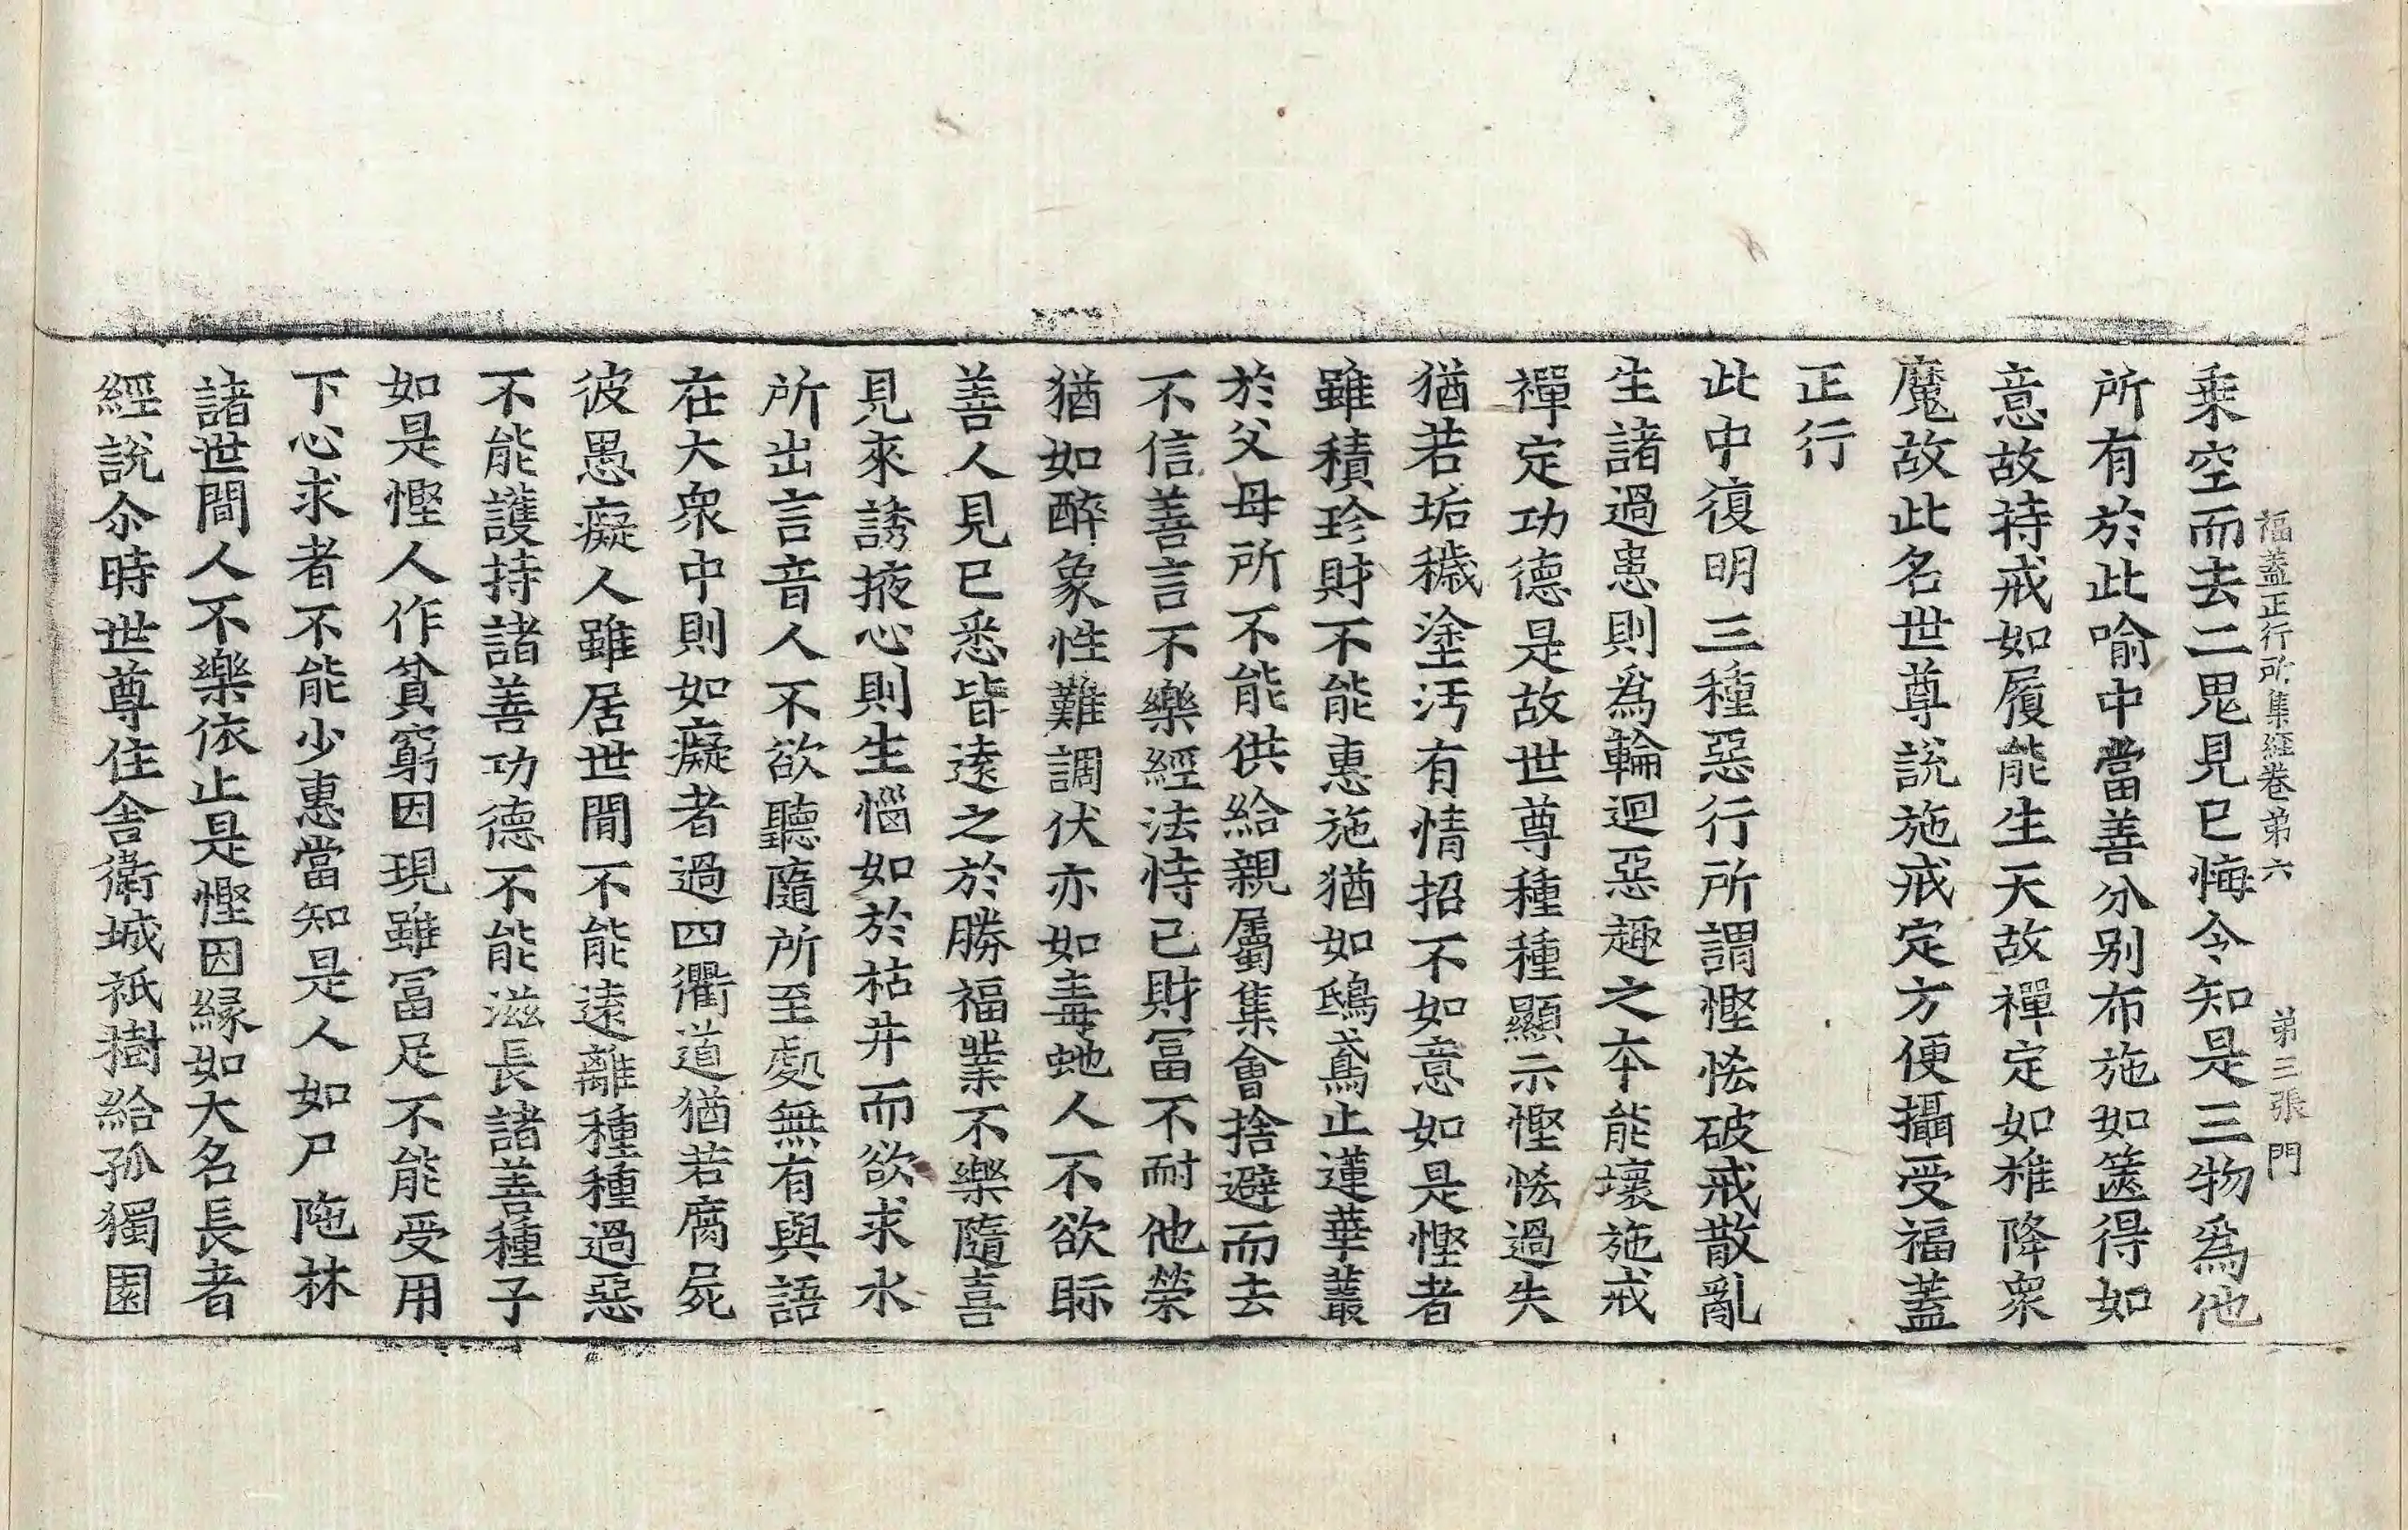 福蓋正行所集經卷第六　第三張　門
乗空而去二鬼見已悔今知是三物爲他
所有於此喻中當善分別布施如篋得如
意故持戒如履能生天故禪定如椎降衆
魔故此名世尊說施戒定方便攝受福蓋
正行
此中復明三種惡行所謂慳悋破戒散亂
生諸過患則爲輪迴惡趣之本能壞施戒
禪定功德是故世尊種種顯示慳悋過失
猶若垢穢塗汚有情招不如意如是慳者
雖積珍財不能惠施猶如鴟鳶止蓮華叢
於父母所不能供給親屬集會捨避而去
不信善言不樂經法恃己財冨不耐他榮
猶如醉象性難調伏亦如毒虵人不欲眎
善人見已悉皆遠之於勝福業不樂隨喜
見來誘掖心則生惱如於枯井而欲求水
所出言音人不欲聽隨所至處無有與語
在大衆中則如癡者過四衢道猶若腐屍
彼愚癡人雖居世間不能遠離種種過惡
不能護持諸善功德不能滋長諸善種子
如是慳人作貧窮因現雖冨足不能受用
下心求者不能少惠當知是人如尸陁林
諸世間人不樂依止是慳因緣如大名長者
經說尒時世尊住舍衛城祇樹給孤獨園